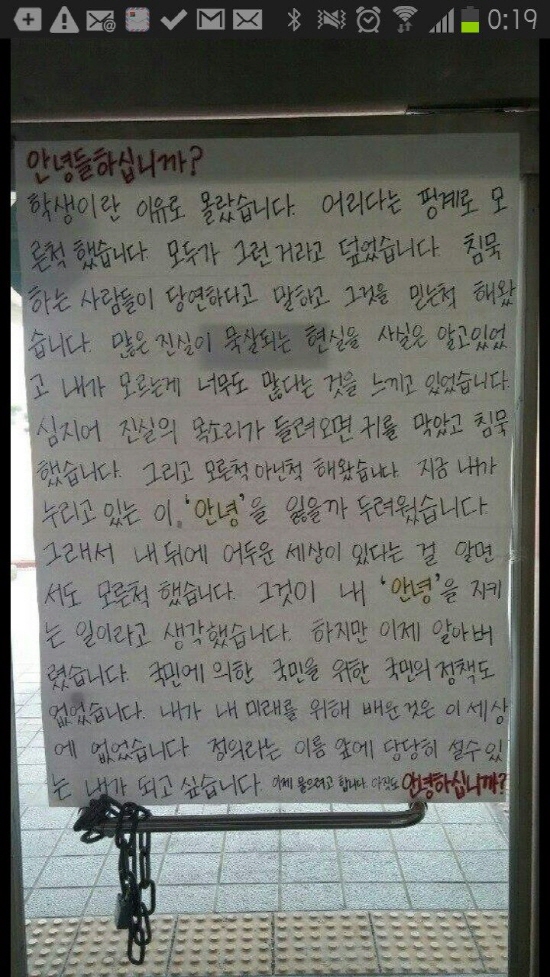 0:19
안녕들하십니까?
학생이란 이유로 몰랐습니다. 어리다는 핑계로 모
른척 했습니다. 모두가 그런거라고 덮었습니다. 침묵
하는 사람들이 당연하다고 말하고 그것을 믿는척 해왔
습니다. 많은 진실이 묵살되는 현실을 사실은 알고있었
고 내가 모르는게 너무도 많다는 것을 느끼고 있었습니다.
심지어 진실의 목소리가 들려오면 귀를 막았고 침묵
했습니다. 그리고 모른척 아닌척 해왔습니다. 지금 내가
누리고 있는 이 '안녕'을 잃을까 두려웠습니다.
그래서 내 뒤에 어두운 세상이 있다는 걸 알면
서도 모른척 했습니다. 그것이 내 '안녕'을 지키
는 일이라고 생각했습니다. 하지만 이제 알아버
렸습니다. 국민에 의한 국민을 위한 국민의 정책도
없었습니다. 내가 내 미래를 위해 배운것은 이 세상
에 없었습니다. 정의라는 이름 앞에 당당히 설수 있
는 내가 되고 싶습니다. 이제 물으려고 합니다. 아직도 안녕하십니까?